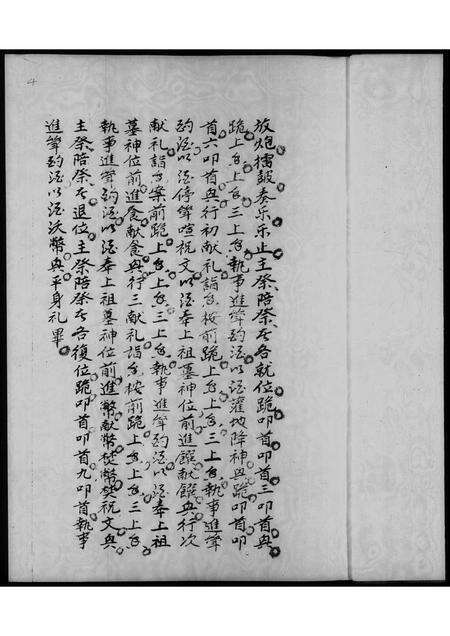 放炮擂鼓奏乐乐止主祭陪祭者各就位跪叩首叩首三叩首兴
跪上香上香三上香执事进斝酌酒以酒灌坡降神兴跪叩首叩
首六叩首兴行初献礼詣香桉前跪上香上香三上香执事進斝
酌酒以酒停斝喧祝文以酒奉上祖墓神位前進饌献饌兴行次
献礼詣香案前跪上香上香三上香执事進斝酌酒以酒奉上祖
墓神位前進食献食兴行三献礼詣香桉前跪上香上香三上香
執事進斝酌酒以酒奉上祖墓神位前進幣献幣焚幣焚祝文兴
主祭陪祭者退位主祭陪祭者各復位跪叩首叩首九叩首執事
進斝酌酒以酒沃幣兴平身礼畢
4